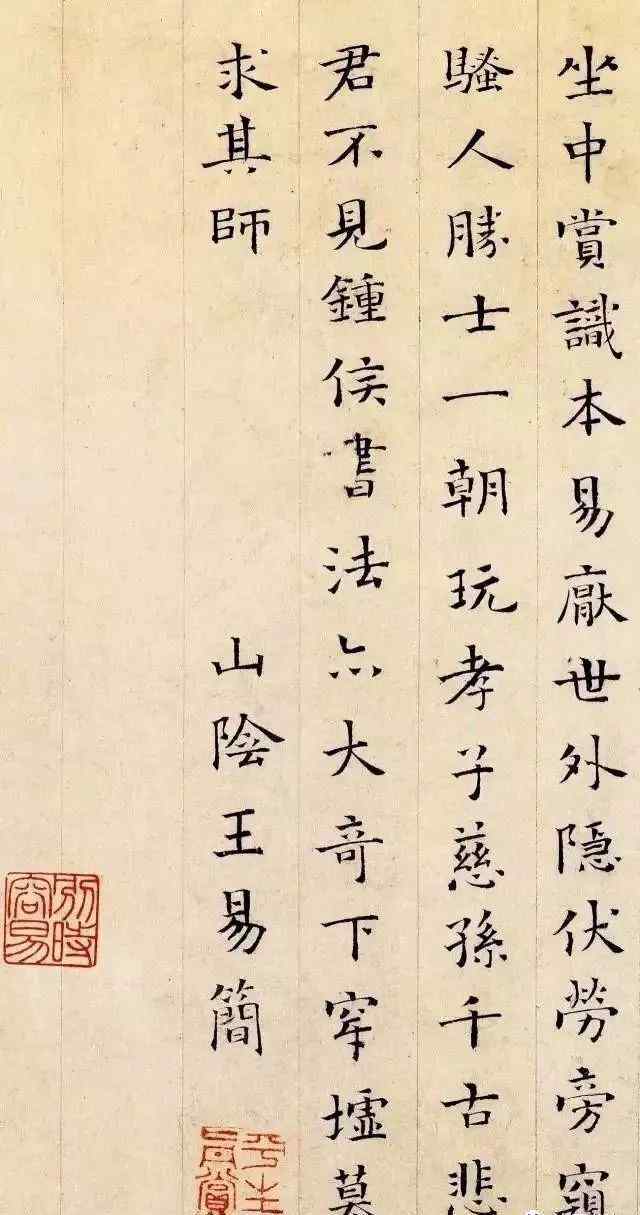 坐中賞識本易厭世外隱伏勞旁窺
騷人勝士一朝玩孝子慈孫千古悲
君不見鍾侯書法亦大奇下穿墟墓
求其師
山陰王易簡
平生真賞
別時容易